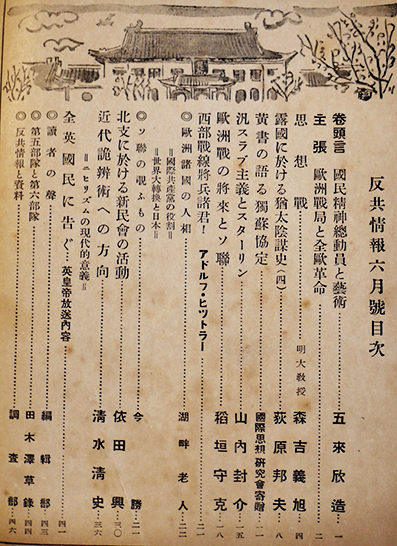 反共情報六月號目次
卷頭言 國民精神總動員と藝術 五來欣造 一
主張 歐洲戰局と全歐革命 一
思想戰 明大教授 森吉義旭 四
露國に於ける猶太陰謀史(四) 荻原邦夫 八
黃書の語る獨蘇協定 國際思想硏究會寄贈
汎スラブ主義とスターリン 山內封介 一五
歐洲戰の將來とソ聯 稻垣守克 一八
西部戰線將兵諸君! アドルフ・ヒットラー
◎歐洲諸國の人相 湖畔老人 二二
=國際共產黨の役割=
=世界大轉換と日本=
◎ソ聯の覗ふもの 今 勝 二一
北支に於ける新民會の活動 依田 興 三〇
近代詭辨術への方向 淸水淸史 三六
=ニヒリズムの現代的意義=
全英國民に告ぐ 英皇帝放送內容 四一
◎讀者の聲 編輯部 四三
◎第五部隊と第六部隊 田木澤草錄 四四
◎反共情報と資料 調査部 四六